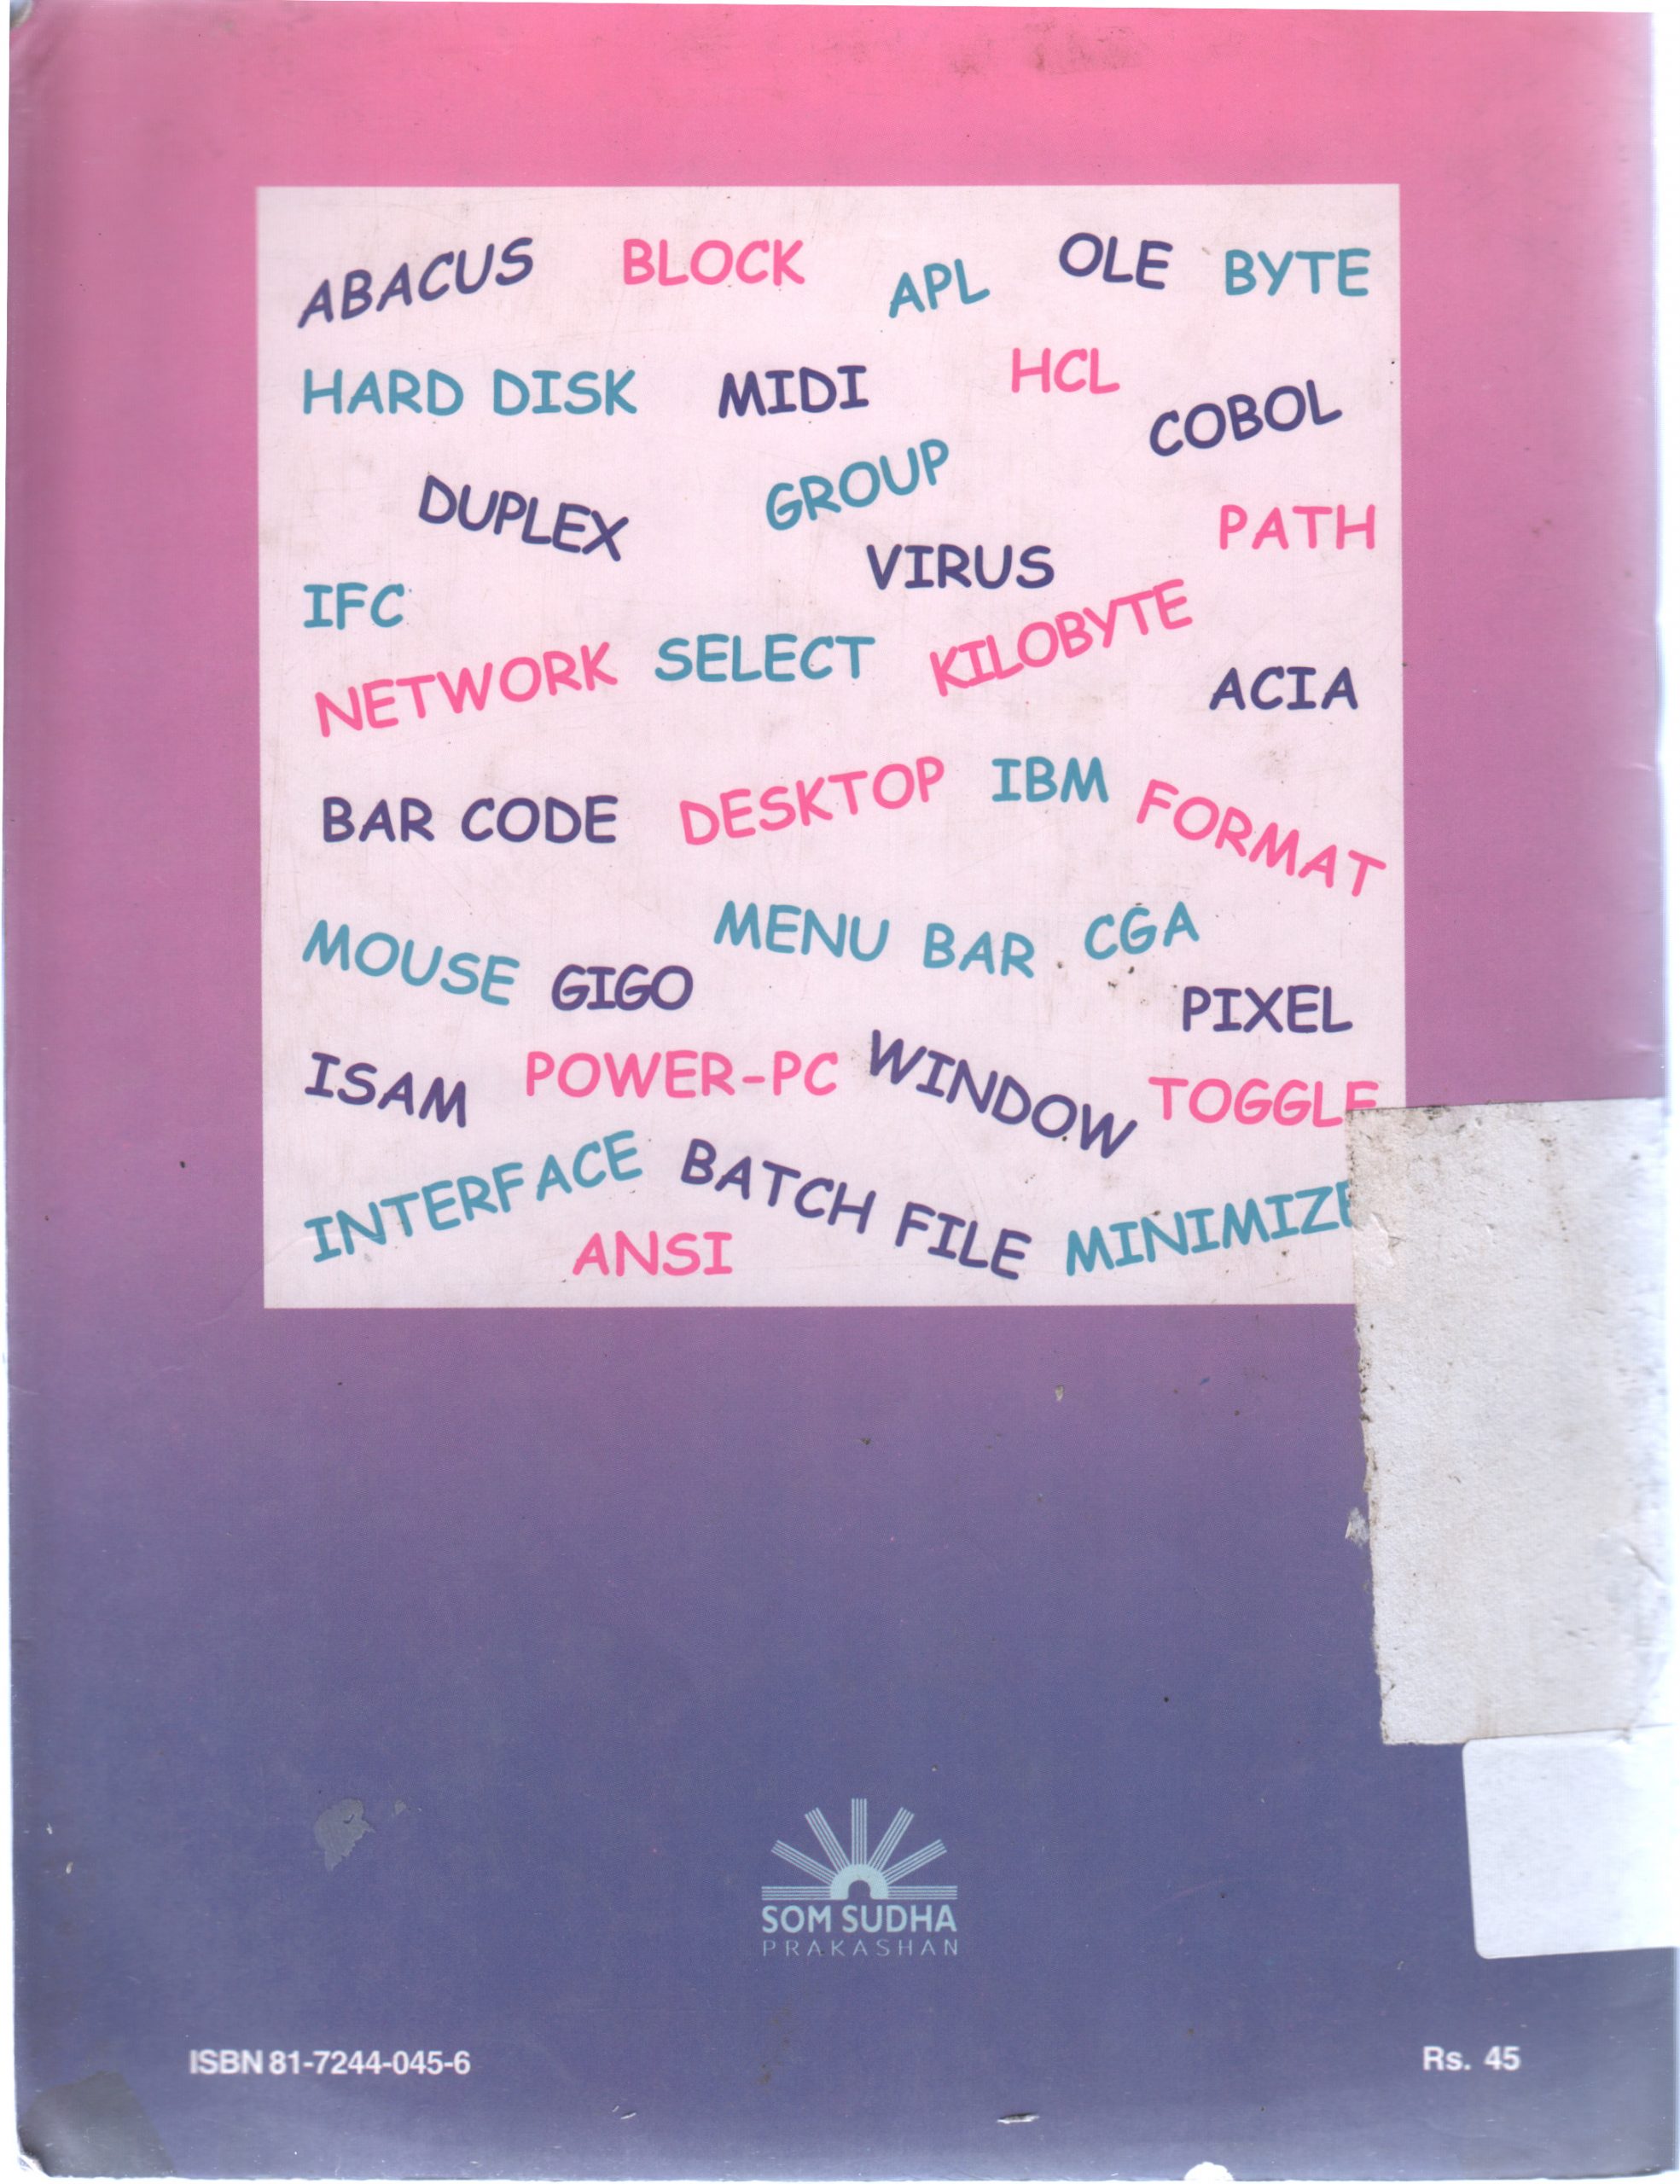 ABACUS BLOCK APL OLE BYTE
HARD DISK MIDI HCL COBOL
DUPLEX GROUP PATH
IFC VIRUS
NETWORK SELECT KILOBYTE ACIA
BAR CODE DESKTOP IBM FORMAT
MOUSE GIGO MENU BAR CGA PIXEL
ISAM POWER-PC WINDOW TOGGLE
INTERFACE BATCH FILE MINIMIZE
ANSI
SOM SUDHA
PRAKASHAN
ISBN 81-7244-045-6 Rs. 45